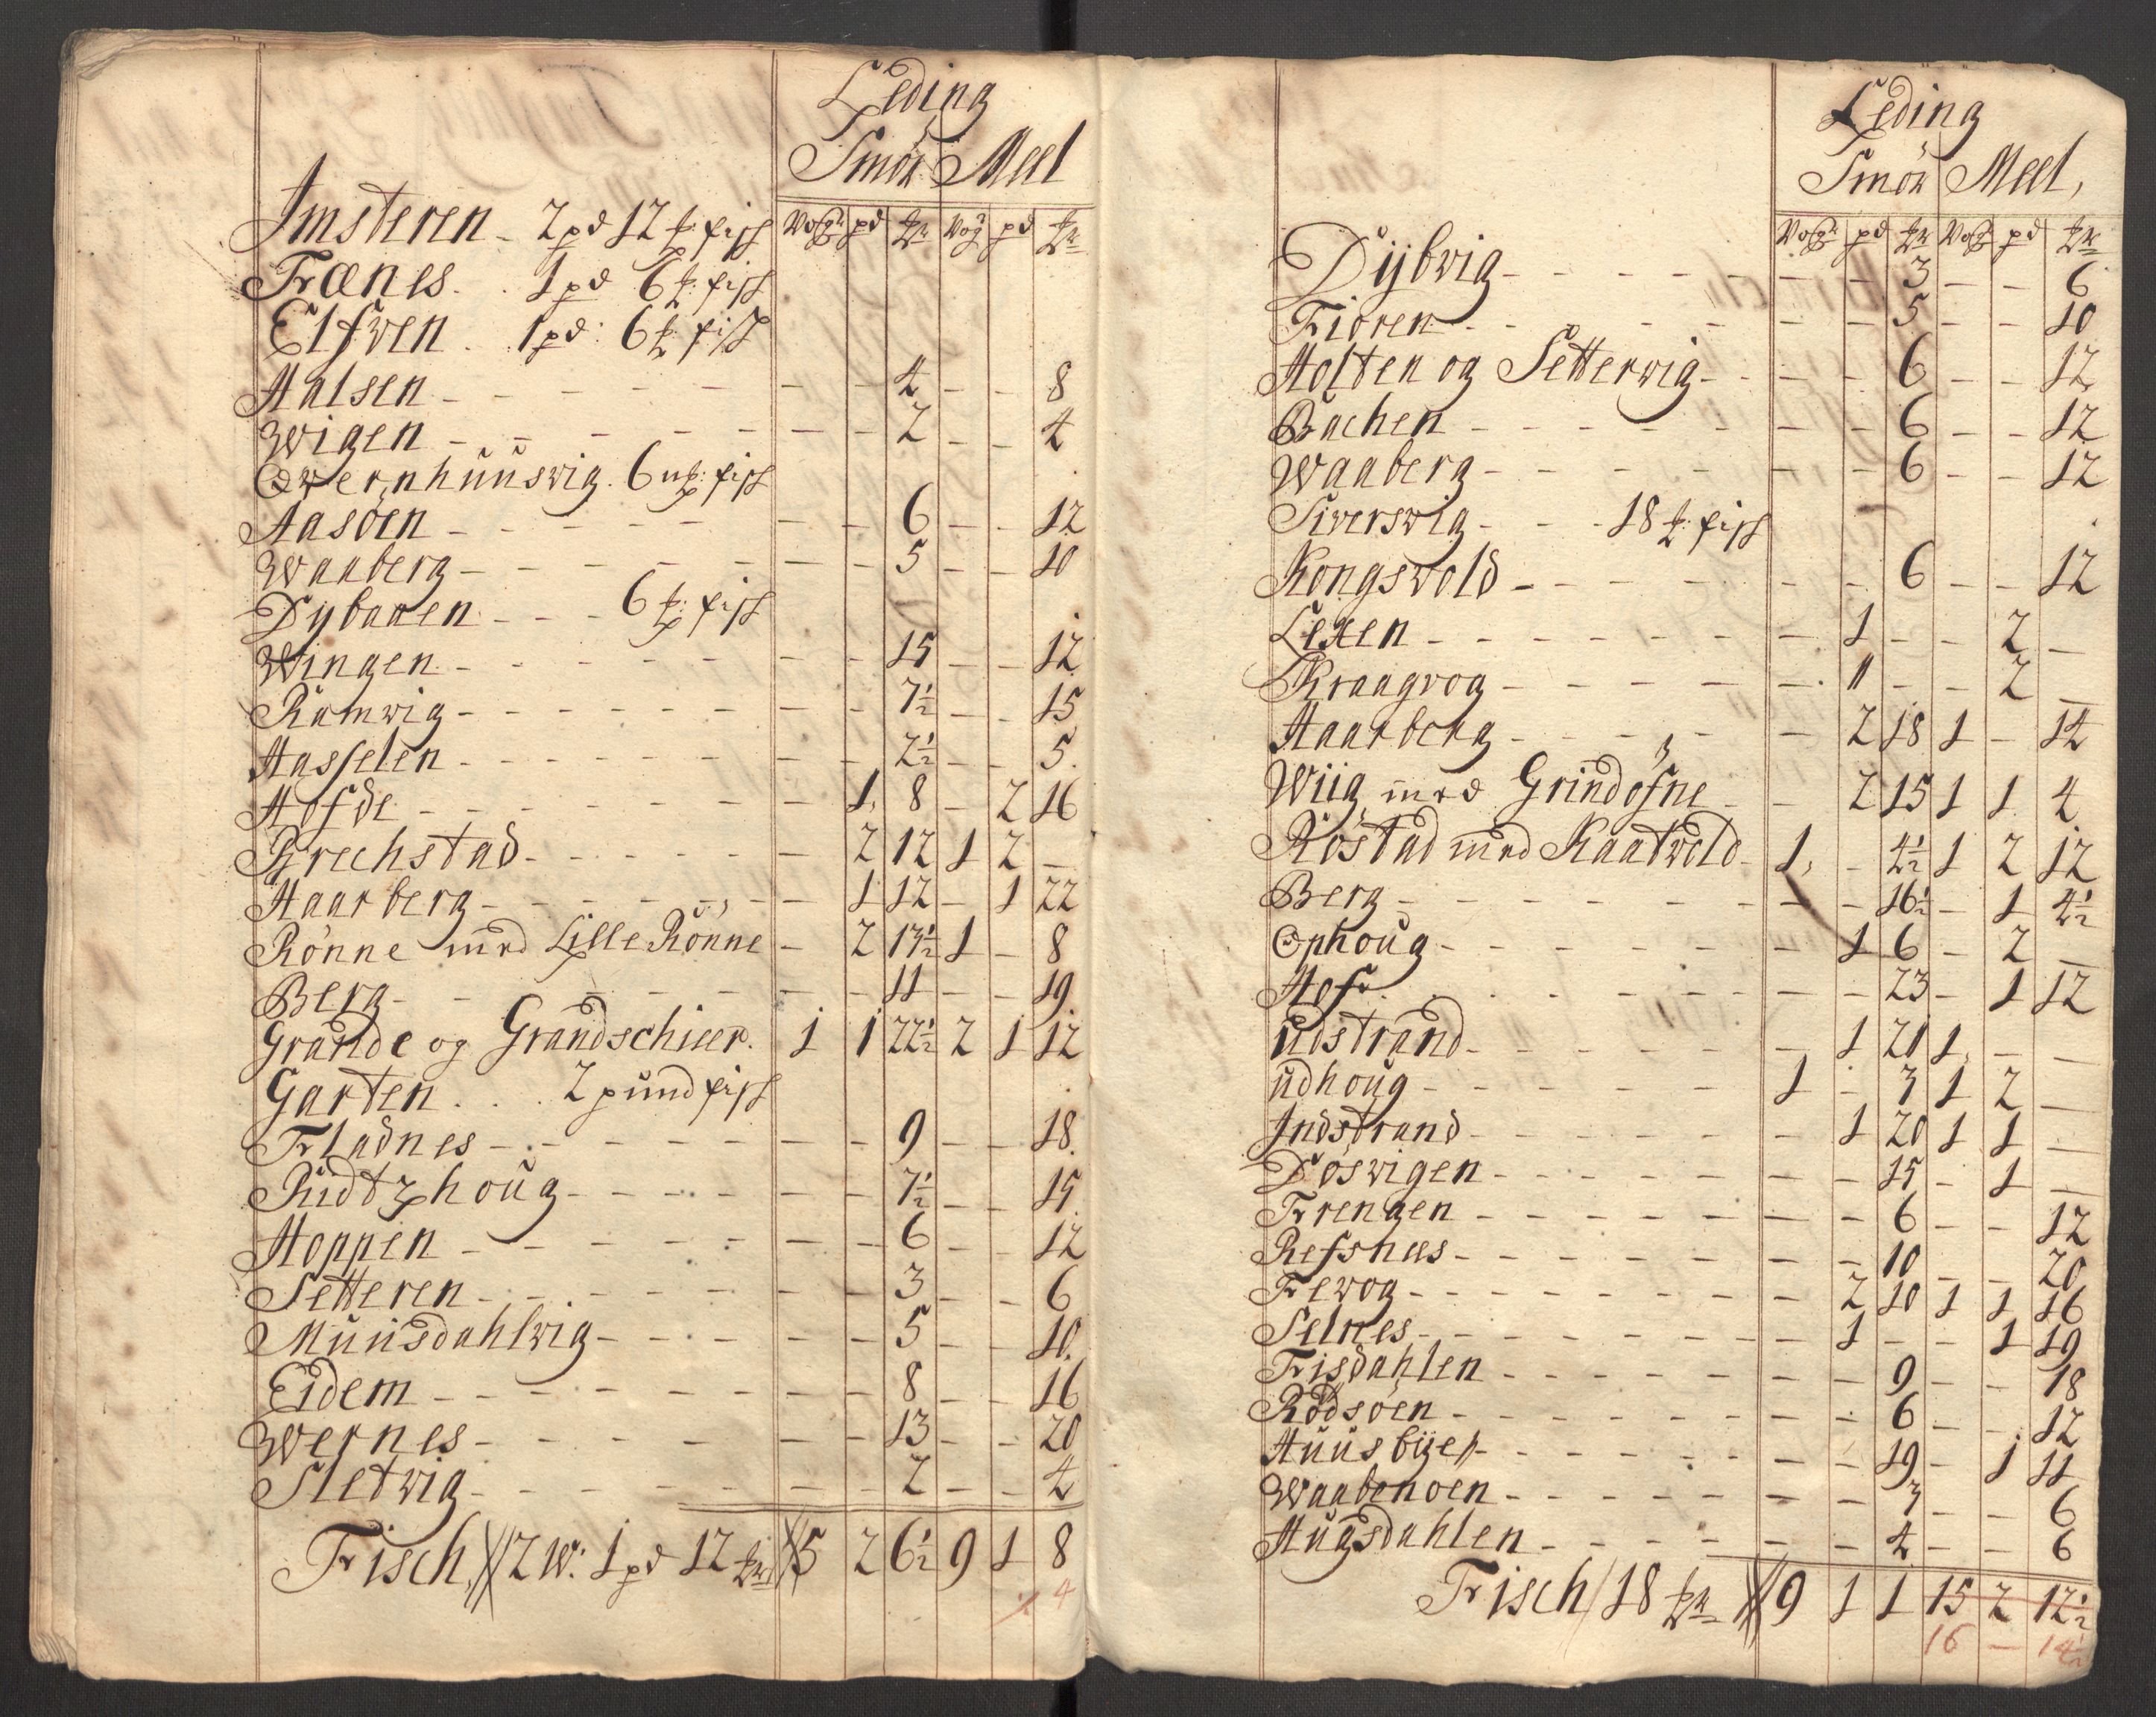 Leding
Smör Meel
Vog pd ℔ Vog pd ℔
Imsteren - 2 pd 12 ℔ fisch
Frænes . . 1 pd 6 ℔ fisch
Elfven . 1 pd: 6 ℔ fisch
Halsen - - - - - - 4 - - 8
Wigen - - - - - - 2 - - 4
Qvernhuusvig. 6 ℔ fisch
Aasöen - - - - - 6 - - 12
Waaberg - - - - - 5 - - 10
Dybaaen - - - 6 ℔ fisch
Wingen - - - - - 15 - - 12
Ramvig - - - - - 7½ - - 15
Hasselen - - - - - 2½ - - 5
Hofde - - - - - 1 8 - 2 16
Brechstad - - - - - 2 12 1 2 -
Haarberg - - - - - 1 12 - 1 22
Rönne med Lille Rönne - 2 13½ 1 - 8
Berg - - - - - 11 - - 19
Grande og Grandschieer. 1 1 22½ 2 1 12
Garten . . . 2 pund fisch
Fladnes - - - - - 9 - - 18
Ridtzhoug - - - - - 7½ - - 15
Hoppen - - - - - 6 - - 12
Setteren - - - - - 3 - - 6
Muusdahlvig - - - - 5 - - 10
Eidem - - - - - 8 - - 16
Wernes - - - - - 13 - - 20
Sletvig - - - - - 2 - - 4
Fisch, 2 W: 1 pd 12 ℔ 5 2 6½ 9 1 8
4
Leding
Smör Meel,
Vog pd ℔ Vog pd ℔
Dybvig - - - - - 3 - - 6
Fioren - - - - - 5 - - 10
Holten og Settervig - - - 6 - - 12
Bachen - - - - - 6 - - 12
Waaberg - - - - - 6 - - 12
Siversvig - - - 18 ℔ fisch
Kongsvold - - - - - 6 - - 12
Lexen - - - - - 1 - - 2 -
Kraagvog - - - - - 1 - - 2 -
Haarberg - - - - - 2 18 1 - 14
Wiig med Grindösne - 2 15 1 1 4
Röstad med Kaatvold - 1 - 4½ 1 2 12
Berg - - - - - 16½ - 1 4½
Ophoug - - - - - 1 6 - 2 -
Hof - - - - - 23 - 1 12
Udstrand - - - - - 1 21 1 - -
Udhoug - - - - 1 - 3 1 2 -
Indstrand - - - - - 1 20 1 1 -
Dösvigen - - - - - 15 - 1 -
Frengen - - - - - 6 - - 12
Refsnæs - - - - - 10 - - 20
Fevog - - - - - 2 10 1 1 16
Selnes - - - - - 1 - - 1 19
Fisdahlen - - - - - 9 - - 18
Rödsöen - - - - - 6 - - 12
Huusbyer - - - - - 19 - 1 11
Waabenoen - - - - - 3 - - 6
Hugsdahlen - - - - - 4 - - 6
Fisch 18 ℔ 9 1 1 15 2 12½
16 - 14½